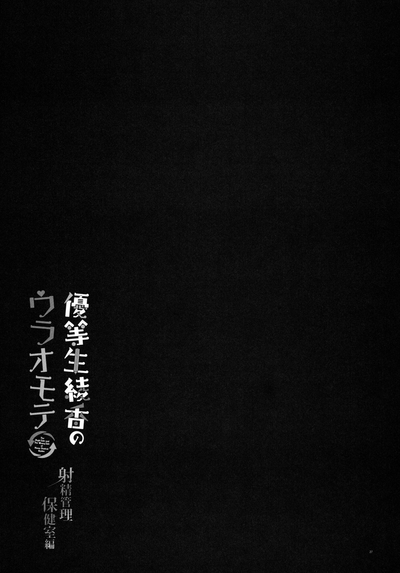 優等生綾杏の
ウラオモテ
射精管理
保健室編